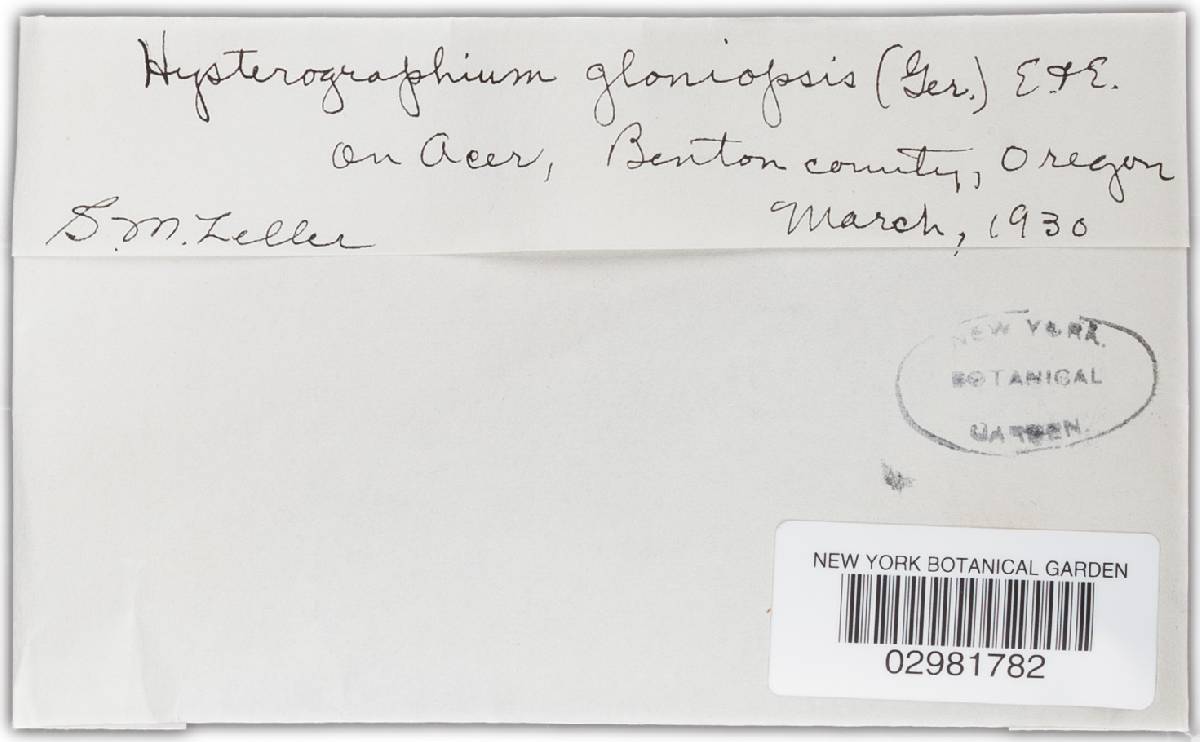 Hysterographium gloniopsis (Ger.) E. & E.
on Acer, Benton county, Oregon
S. M. Zeller March, 1930
NEW YORK
BOTANICAL
GARDEN.
NEW YORK BOTANICAL GARDEN
02981782